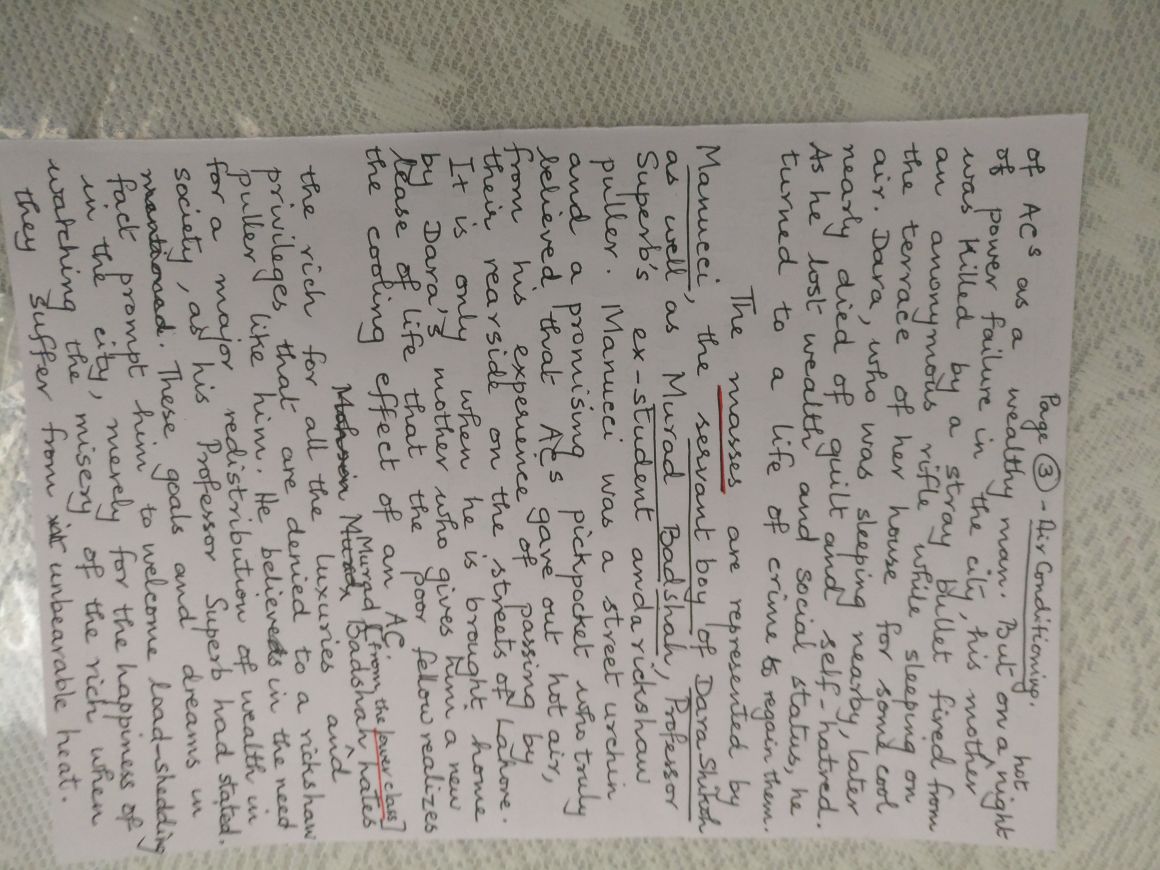 Page ③ - Air Conditioning.
of ACs as a wealthy man. But on a hot night
of power failure in the city, his mother
was killed by a stray bullet fired from
an anonymous rifle while sleeping on
the terrace of her house for some cool
air. Dara, who was sleeping nearby, later
nearly died of guilt and self-hatred.
As he lost wealth and social status, he
turned to a life of crime to regain them.
The masses are represented by
Manucci, the servant boy of Dara Shikoh
as well as Murad Badshah, Professor
Superb's ex-student and a rickshaw
puller. Manucci was a street urchin
and a promising pickpocket who truly
believed that ACs gave out hot air,
from his experience of passing by
their rearside on the streets of Lahore.
It is only when he is brought home
by Dara's mother who gives him a new
lease of life that the poor fellow realizes
the cooling effect of an AC.
Mohsin Murad Murad Badshah [from the lower class] hates
the rich for all the luxuries and
privileges that are denied to a rickshaw
puller like him. He believes in the need
for a major redistribution of wealth in
society, as his Professor Superb had stated.
mentioned. These goals and dreams in
fact prompt him to welcome load-shedding
in the city, merely for the happiness of
watching the misery of the rich when
they suffer from unbearable heat.